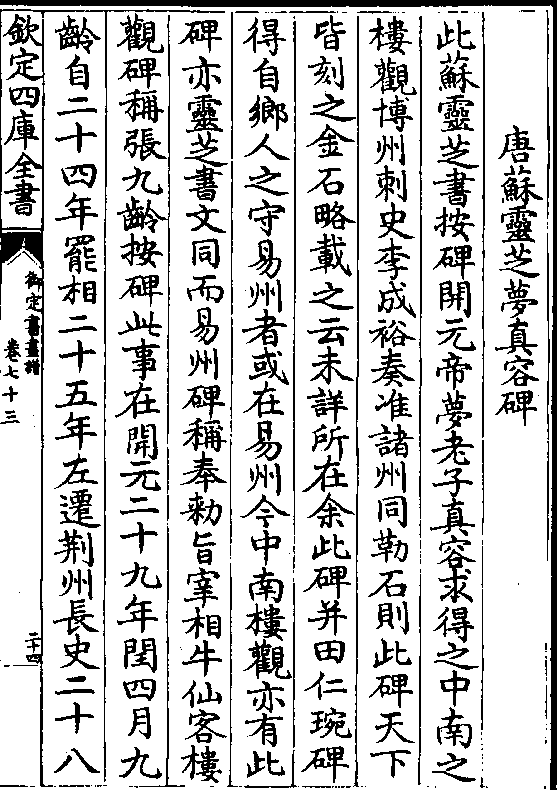 唐蘇靈芝夢真容碑
此蘇靈芝書按碑開元帝夢老子真容求得之中南之
樓觀博州刺史李成裕奏准諸州同勒石則此碑天下
皆刻之金石略載之云未詳所在余此碑并田仁琬碑
得自鄉人之守易州者或在易州今中南樓觀亦有此
碑亦靈芝書文同而易州碑稱奉勅旨宰相牛仙客樓
觀碑稱張九齡按碑此事在開元二十九年閏四月九
齡自二十四年罷相二十五年左遷荆州長史二十八
欽定四庫全書
御定書畫譜
卷七十三
二十四